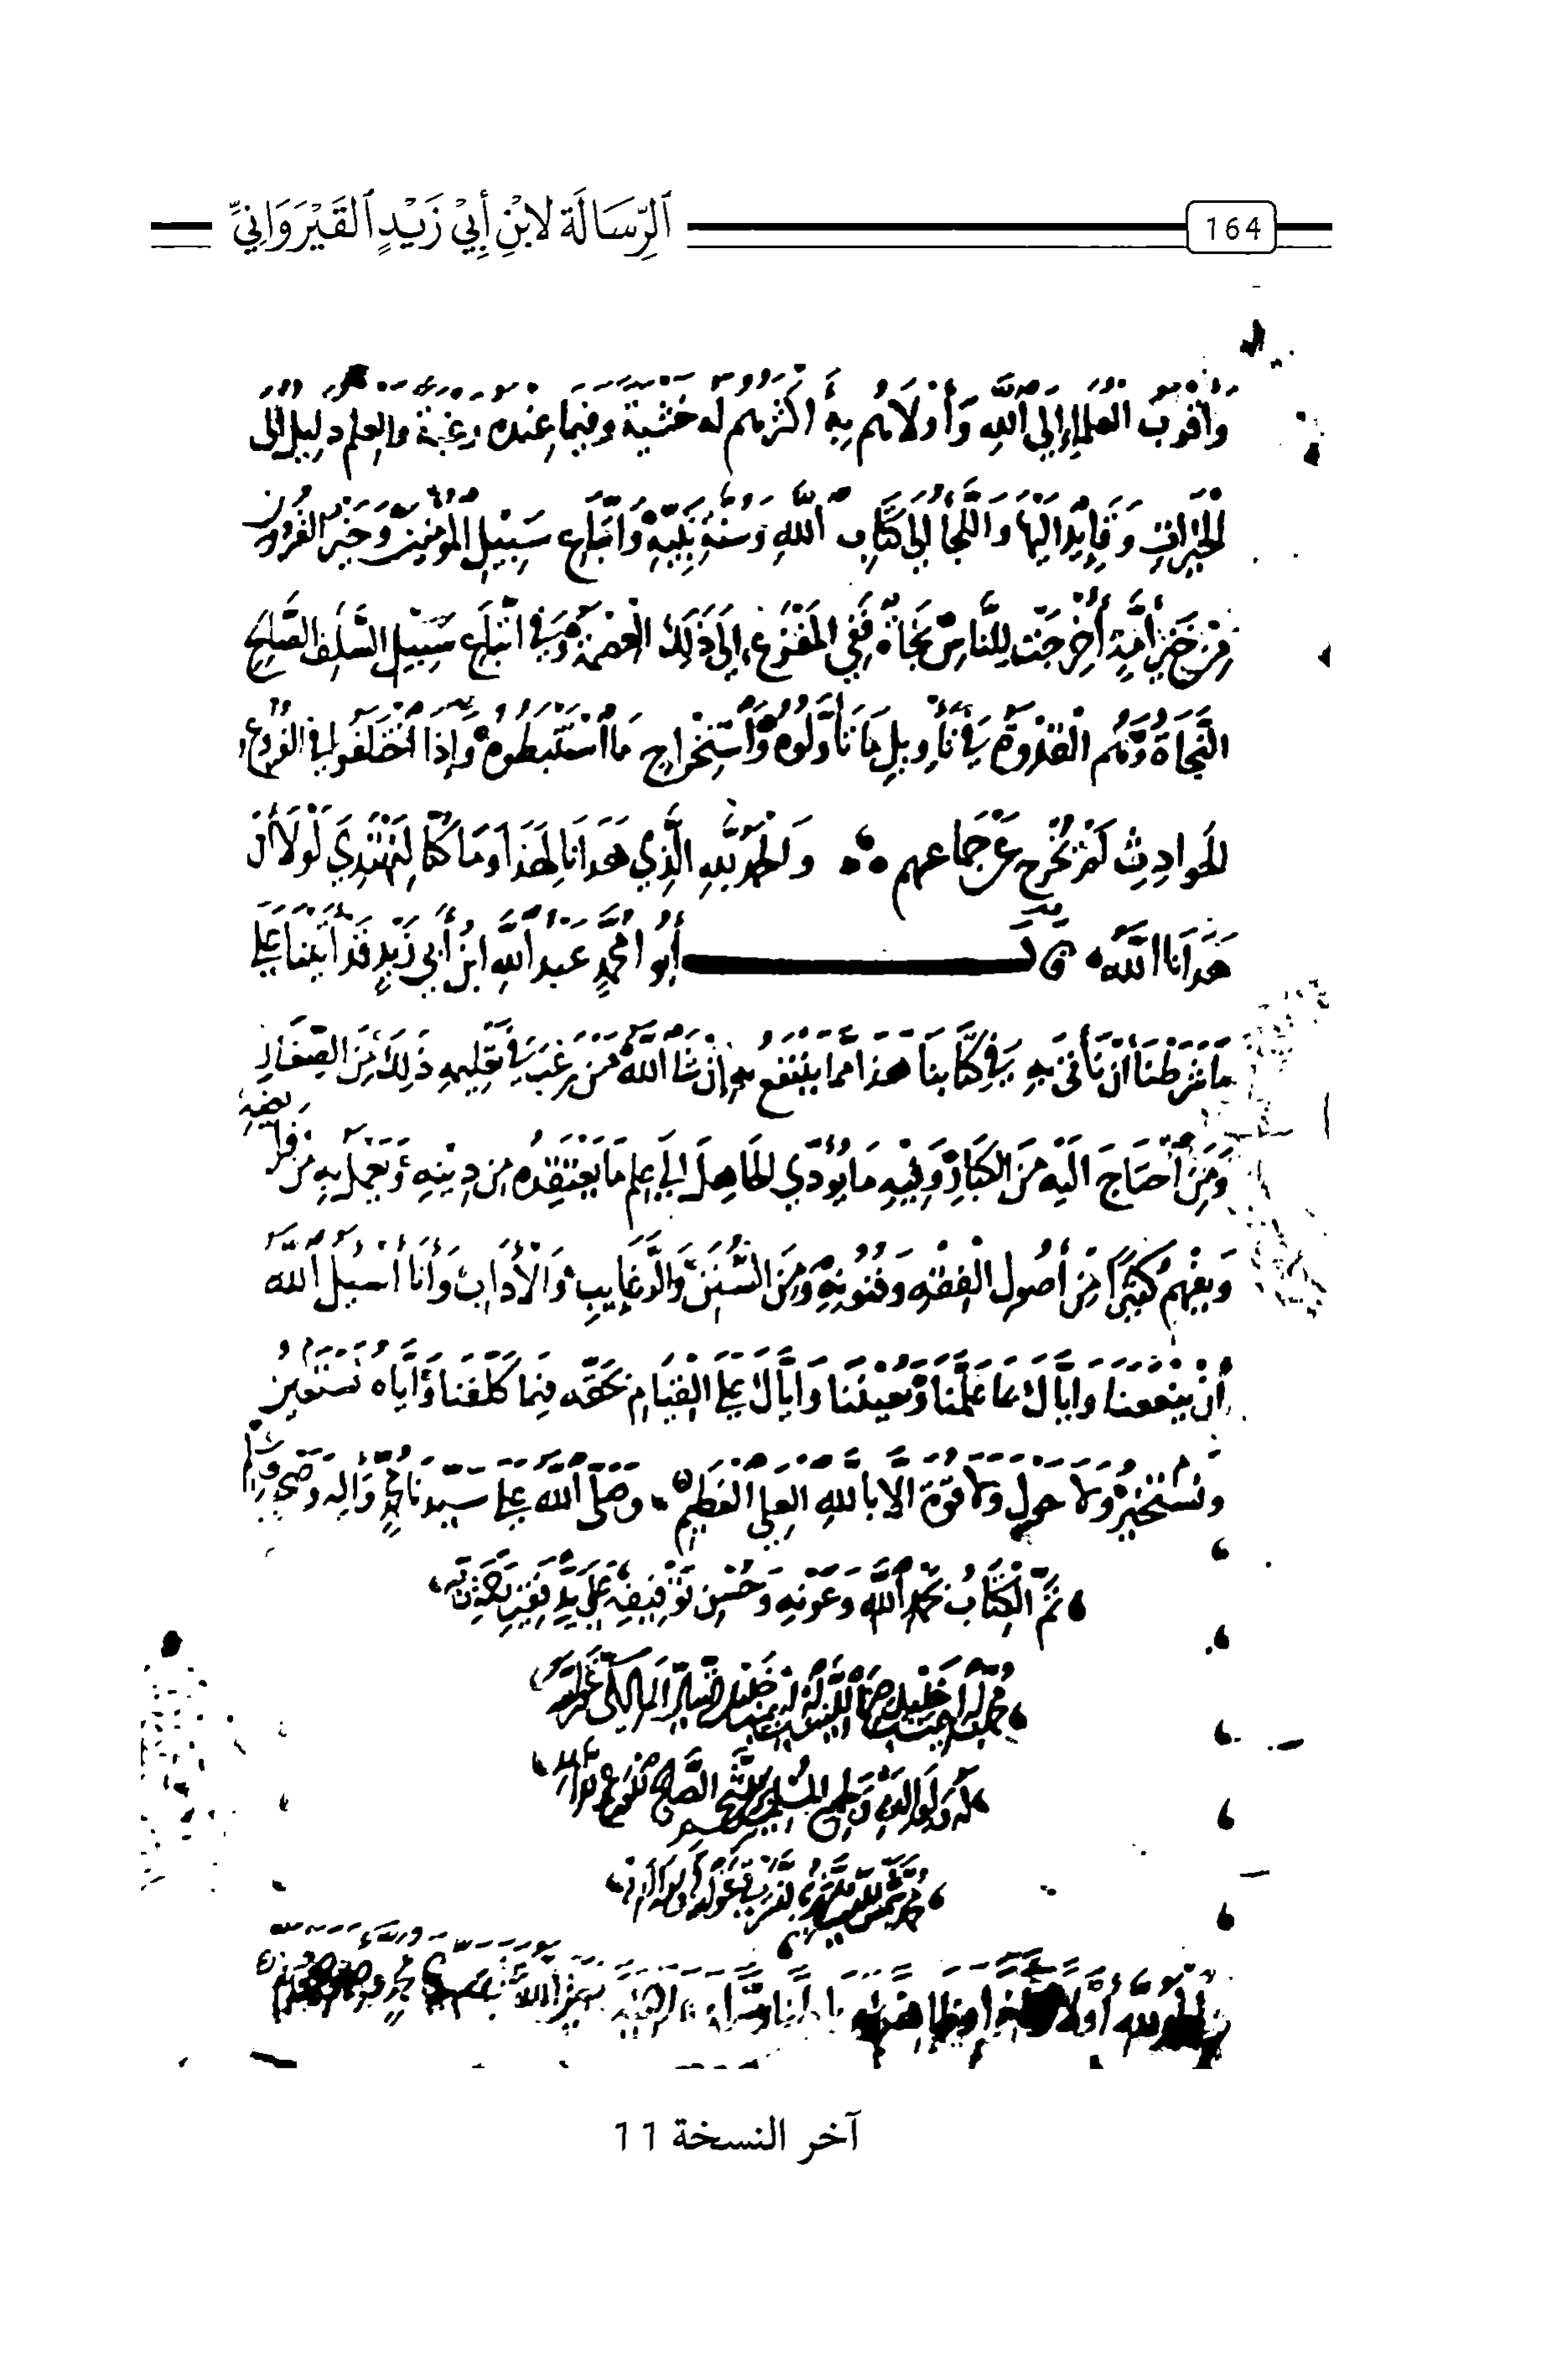 164
الرِّسَالَة لابْنِ أَبِيْ زَيْدٍ القَيْرَوَانِيِّ
وَأقرَبُ العُلَمَاءِ إِلَى اللَّهِ وَأوْلَاهُم بِهِ أكثرُهُم لَه خَشْيَةً وَفِيمَا عِنْدَهُ رَغْبَةً والعِلم دَلِيلٌ إلَى
الخَيْرَاتِ وَقَايِدٌ اليْهَا وَاللَّجَأُ إِلَى كِتَابِ اللَّهِ وَسُنَّةِ نَبِيِّهِ وَاتّبَاعِ سَبِيْلِ المُؤْمِنِينَ وَخَيْرِ القُرُونِ
مِنْ خَيْرِ أُمَّةٍ أُخْرِجَت لِلنَّاسِ نَجَاةٌ فَفِي المَفْزَعِ إِلَى ذَلِكَ العِصْمَةُ وَفِي اتّبَاعِ سَبِيْلِ السَّلَفِ الصَّالِحِ
النَّجَاةُ وَهُم القُدْوَةُ فِي تَأوِيلِ مَا تَأَوَّلُوهُ وَاسْتِخْرَاجِ مَا اسْتَنْبَطُوهُ وَإِذَا اخْتَلَفُوا فِي الفُرُوعِ
الحَوادِثِ لَمْ نَخْرُج عَنْ جَمَاعَتهم وَالحَمْدُ لِلَّهِ الَّذِي هَدَانَا لِهَذَا وَمَا كُنَّا لِنَهْتَدِيَ لَوْلَا أَنْ
هَدَانَا اللَّهُ قَالَ أَبُو مُحَمَّدٍ عَبْدُ اللَّهِ ابْنُ أَبِي زَيْدٍ قَدْ أتَيْنَا عَلَى
مَا شَرَطْنَا أنْ نَأتِيَ بِهِ فِي كِتَابِنَا هَذَا مِمَّا يَنْتَفِعُ بِهِ إنْ شَاءَ اللَّهُ مَنْ رَغِبَ فِي تَعْلِيمِ ذَلِكَ مِنَ الصِّغَارِ
وَمَنْ احْتَاجَ اليْهِ مِنَ الكِبَارِ وَفِيْهِ مَا يُؤدِّي الجَاهِلَ إلَى عِلمِ مَا يَعْتَقِدُهُ مِنْ دِيْنِهِ وَيَعْمَلُ بِهِ مِنْ فَرايضِهِ
وَيَفْهَمُ كَثِيْرًا مِنْ أُصُولِ الفِقْهِ وَفُنُونِهِ وَمِنَ السُّنَنِ وَالرَّغَايِبِ وَالْأدَابِ وَأنَا أسْئلُ اللَّهَ
أنْ يَنْفَعَنَا وَايَّاكَ بمَا عَلَّمَنَا وَيُعِيْنَنَا وَايَّاكَ عَلَى القِيَامِ بِحَقِّه فِيمَا كَلَّفَنَا وَايَّاهُ نَسْتَعِينُ
وَنَسْتَخِيرُ وَلَا حَوْلَ وَلَا قُوَّةَ الَّا بِاللَّهِ العَلِي العَظِيمِ وَصَلَّى اللَّهُ عَلَى سَيِّدِنَا مُحَمَّدٍ وَآلِهِ وَصَحْبِهِ وَسَلَّم
تَمَّ الكِتَابُ بِحَمْدِ اللَّهِ وَعَوْنِهِ وَحُسْنِ تَوْفِيقِهِ عَلَى يَدِ
المَالِكِي غَفَرَ اللهُ
لَهُ وَلِوَالِدَيْهِ
الحمد لله أوَّلًا وظاهرا وباطنا
آخر النسخة 11